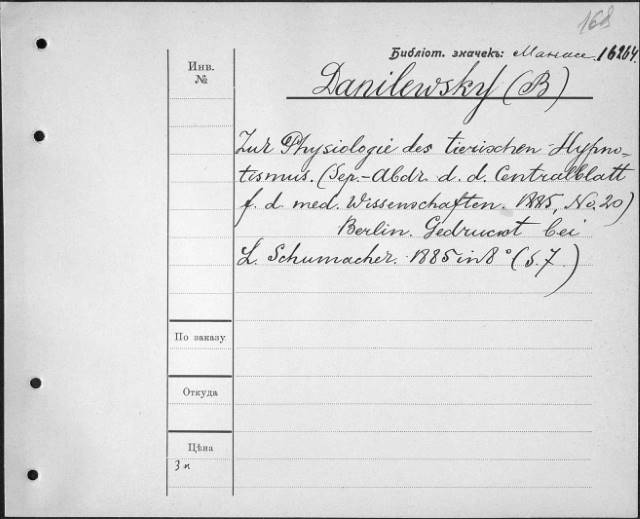 168
Библіот. значекъ: 16264.
Инв.
№
Danilewsky (B)
Zur Physiologie des tierischen Hypno-
tismus. (Sep.-Abdr. d. d. Centralblatt
f. d. med. Wissenschaften. 1885, No. 20)
Berlin. Gedruckt bei
L. Schumacher. 1885 in 8° (S. 7.)
По заказу
Откуда
Цѣна
3 к